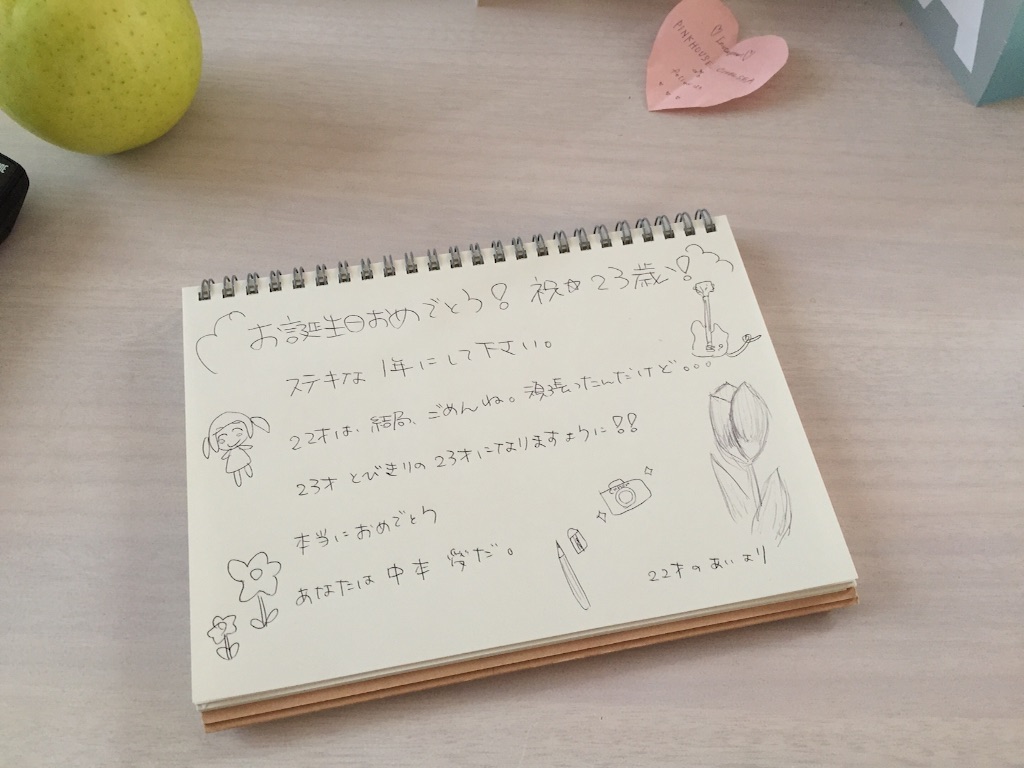 PINKHOUSE
お誕生日おめでとう！ 祝☆23歳い！
ステキな 1年にして下さい。
22才は、結局、ごめんね。頑張ったんだけど。。。
23才 とびきりの 23才になりますように！！
本当に おめでとう
あなたは 中本 愛だ。
22才の あいより